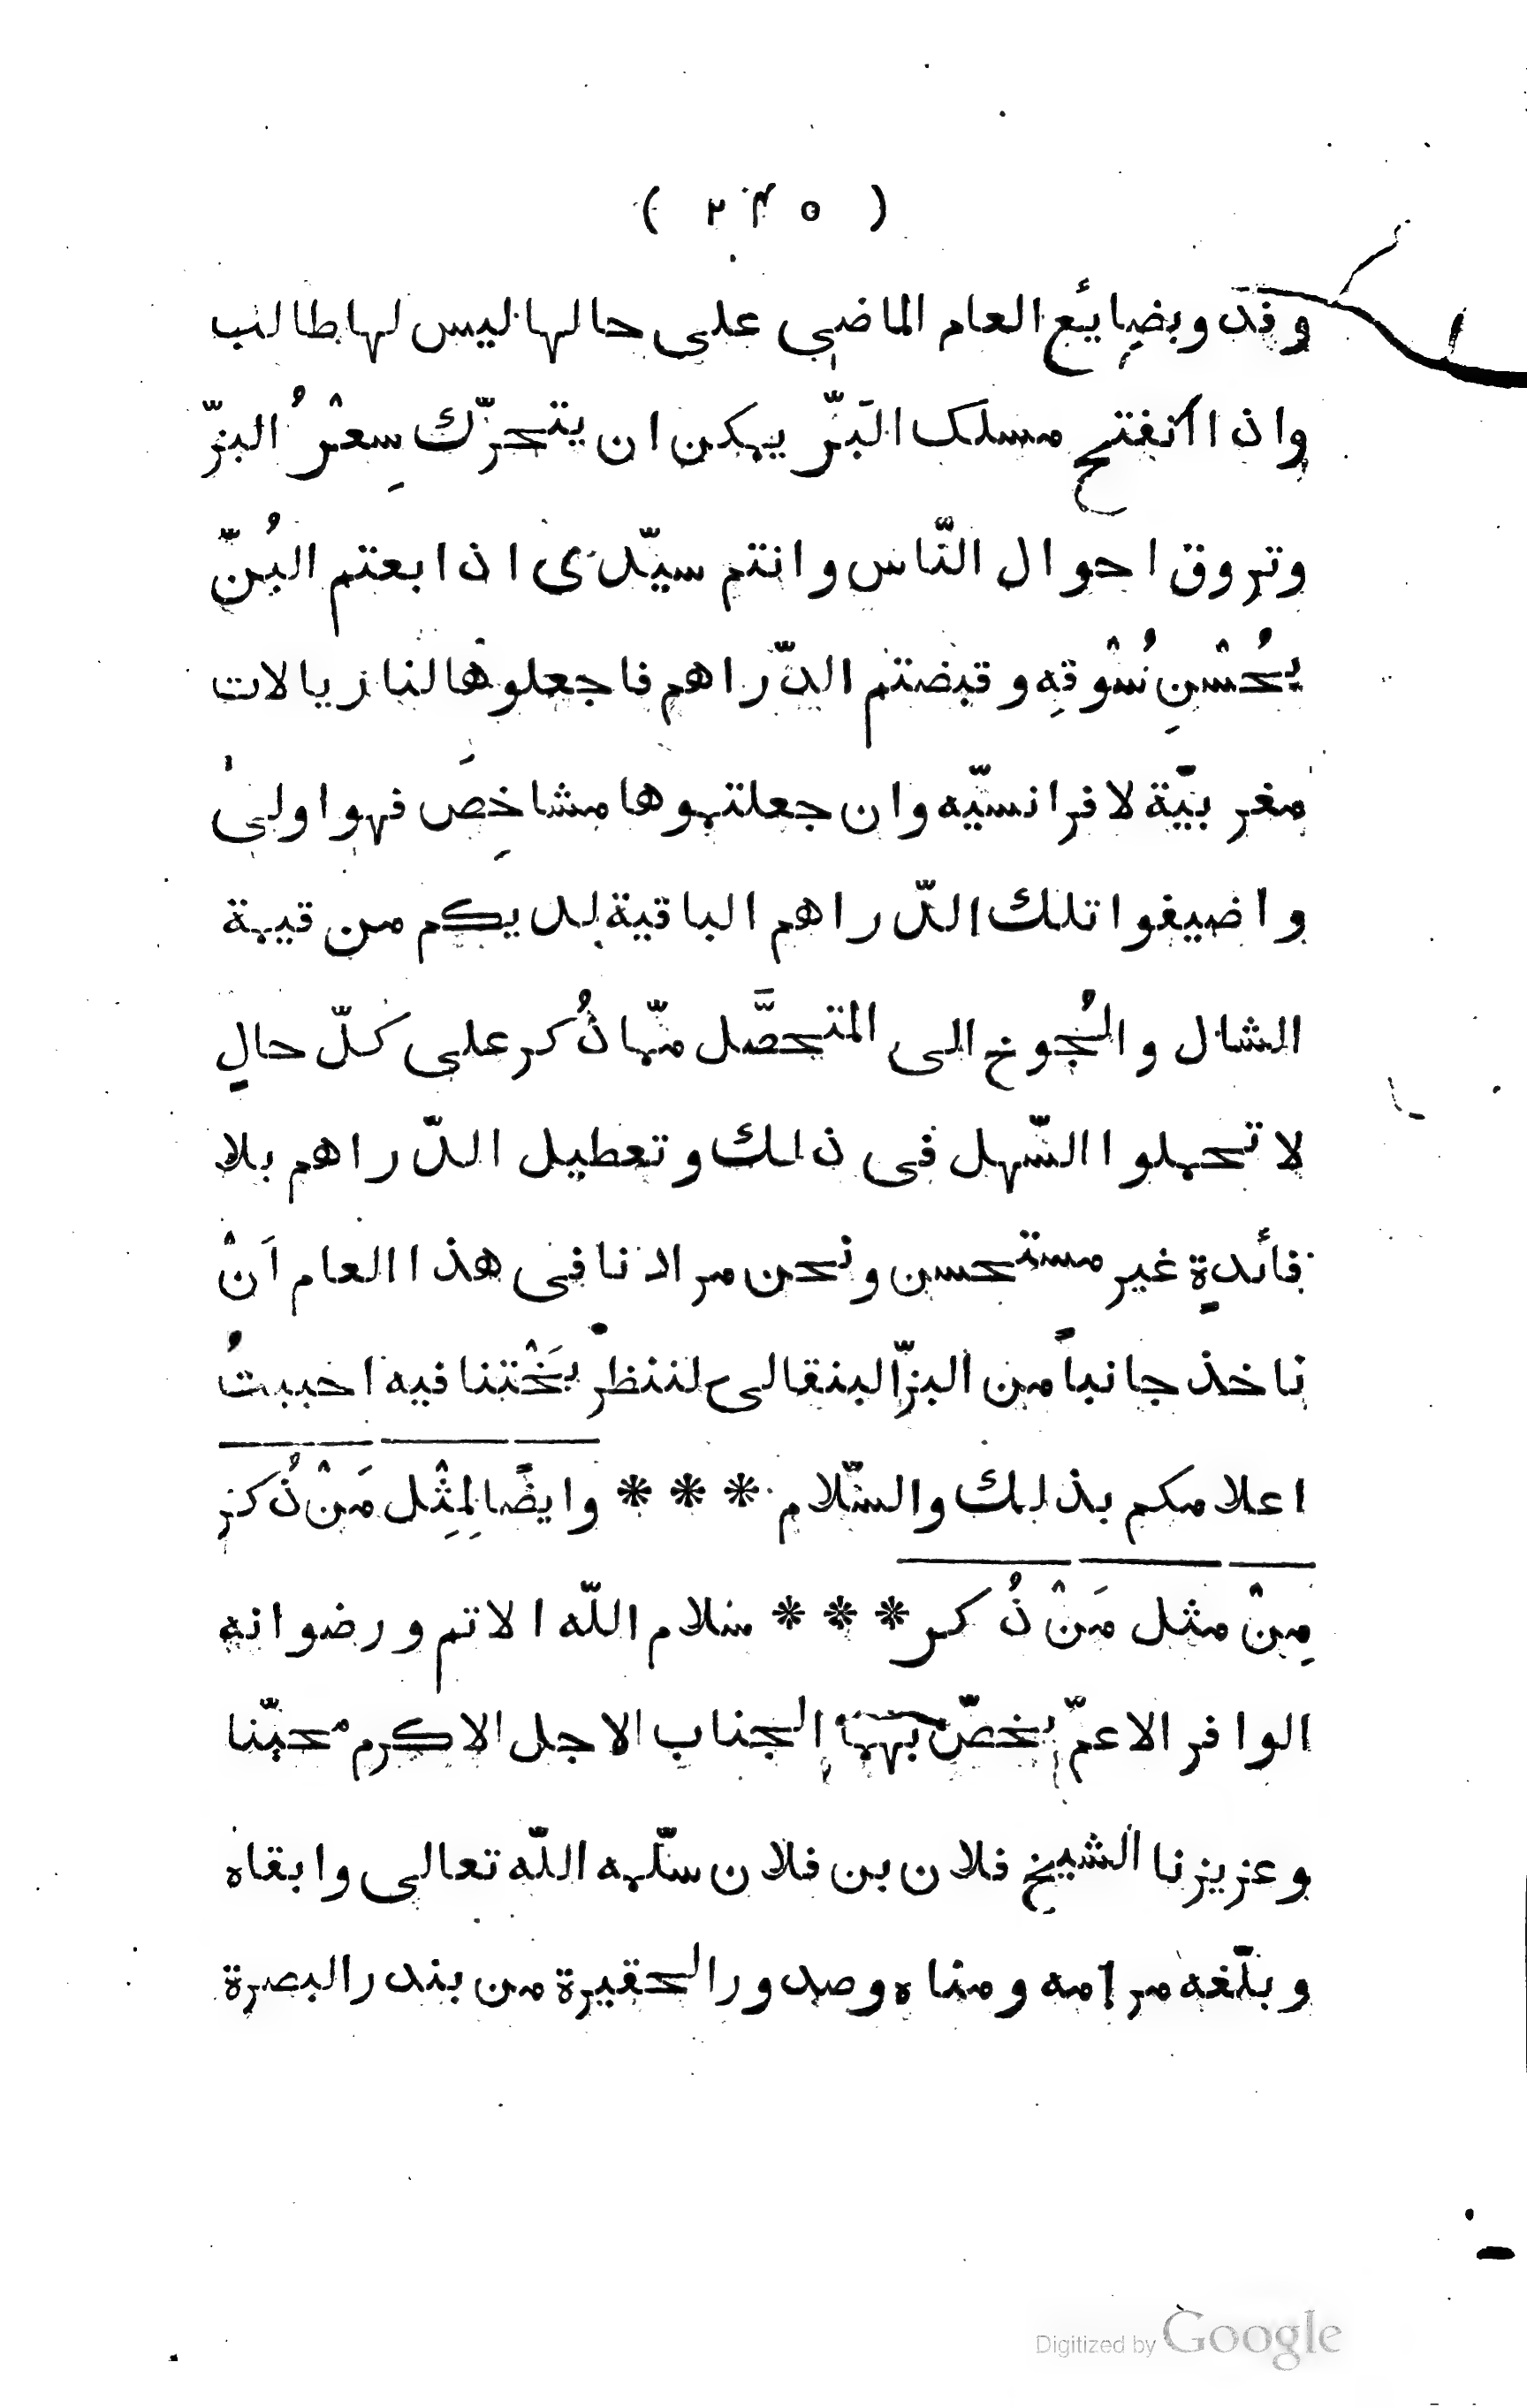 ( ٢٤٥ )
وقد وبضائع العام الماضى على حالها ليس لها طالب
واذا انفتح مسلك البَزّ يمكن ان يتحرّك سِعْرُ البزّ
وتروق احوال النّاس وانتم سيّدى اذا بعتم البُنّ
بحُسْنِ سُوْقِه وقبضتم الدّراهم فاجعلوها لنا ريالات
مغربيّة لا فرانسيّه وان جعلتموها مشاخِصَ فهو اولىٰ
واضيفوا تلك الدّراهم الباقية لديكم من قيمة
الشال والجُوخ الى المتحصَّل ممّا ذُكر على كلّ حالٍ
لا تحملوا السّهل فى ذلك وتعطيل الدّراهم بلا
فائدةٍ غير مستحسن ونحن مرادنا فى هذا العام اَنْ
ناخذ جانباً من البزّ البنقالى لننظر بَخْتنا فيه احببتُ
اعلامكم بذلك والسّلام * * * وايضًا لِمِثْل مَنْ ذُكر
مِنْ مثل مَنْ ذُكر * * * سلام اللّه الاتم ورضوانه
الوافر الاعمّ يخصّ بهما الجناب الاجل الاكرم محبّنا
وعزيزنا الشيخ فلان بن فلان سلّمه اللّه تعالى وابقاه
وبلّغه مرامه ومناه وصدور الحقيرة من بندر البصرة
Digitized by Google